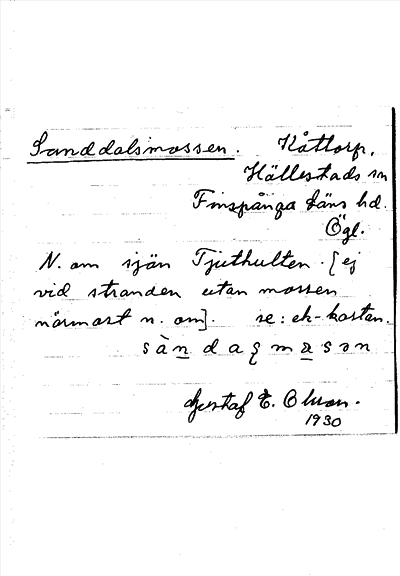 Sanddalsmossen. Kåttorp,
Hällestads sn
Finspånga läns hd.
Ögl.
N. om sjön Tjuthulten. [ej
vid stranden utan mossen
närmast n. om]. se: ek-kartan.
Gustaf E. Olson.
1930